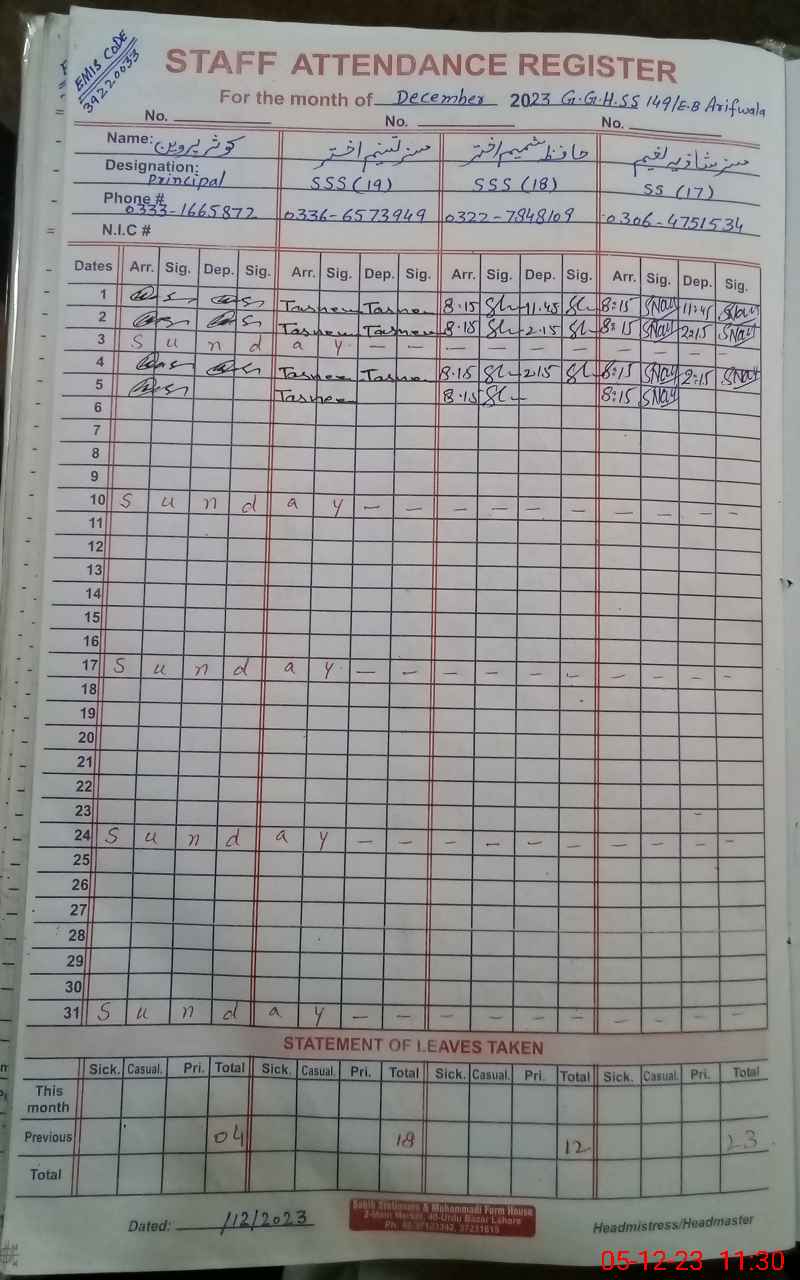 EMIS CODE
39220033
STAFF ATTENDANCE REGISTER
For the month of December 2023 G.G.H.SS 149/E.B Arifwala
No. No. No.
Name: کوثر پروین مسز تسنیم اختر حافظ شمیم اختر مسز شازیہ
Designation: Principal SSS (19) SSS (18) SS (17)
Phone # 0333-1665872 0336-6573949 0322-7848109 0306-4751534
N.I.C #
Dates Arr. Sig. Dep. Sig. Arr. Sig. Dep. Sig. Arr. Sig. Dep. Sig. Arr. Sig. Dep. Sig.
1 Tasneem Tasneem 8.15 11.45 8:15 SNaz 11:45 SNaz
2 Tasneem Tasneem 8.15 2.15 8:15 SNaz 2:15 SNaz
3 S u n d a y - - - - - - - - - -
4 Tasneem Tasneem 8.15 2.15 8:15 SNaz 2:15 SNaz
5 Tasneem 8.15 8:15 SNaz
6
7
8
9
10 S u n d a y - - - - - - - - - -
11
12
13
14
15
16
17 S u n d a y - - - - - - - - - -
18
19
20
21
22
23
24 S u n d a y - - - - - - - - - -
25
26
27
28
29
30
31 S u n d a y - - - - - - - - - -
STATEMENT OF LEAVES TAKEN
Sick. Casual. Pri. Total Sick. Casual. Pri. Total Sick. Casual. Pri. Total Sick. Casual. Pri. Total
This month
Previous 04 18 12 23
Total
Dated: /12/2023
Stationers & Mohammadi Form House
2-Main Market, 40-Urdu Bazar Lahore
Headmistress/Headmaster
05-12-23 11:30